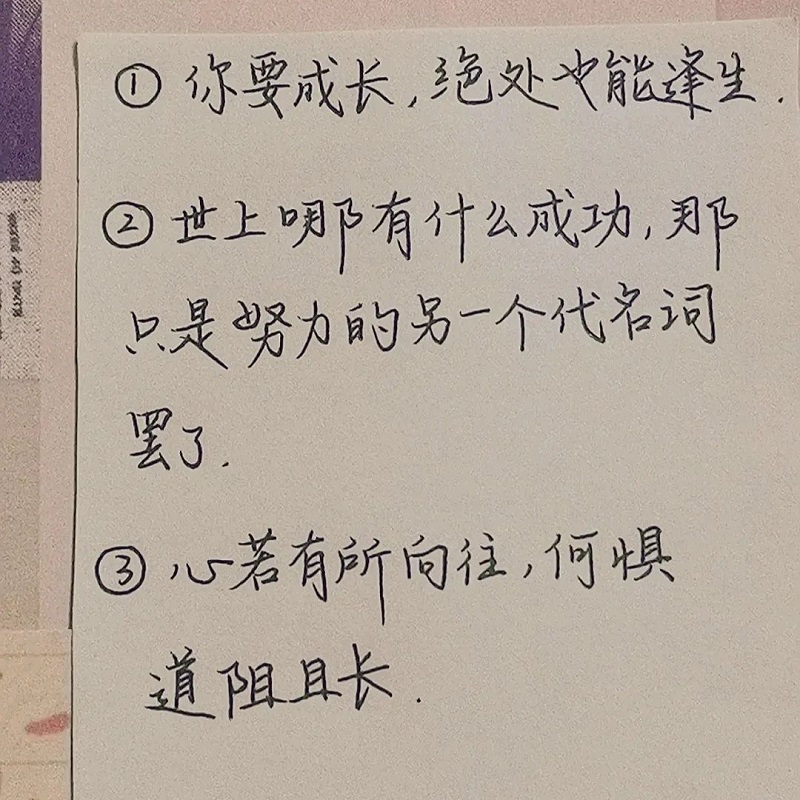 ① 你要成长,绝处也能逢生.
② 世上哪有什么成功,那
只是努力的另一个代名词
罢了.
③ 心若有所向往,何惧
道阻且长.